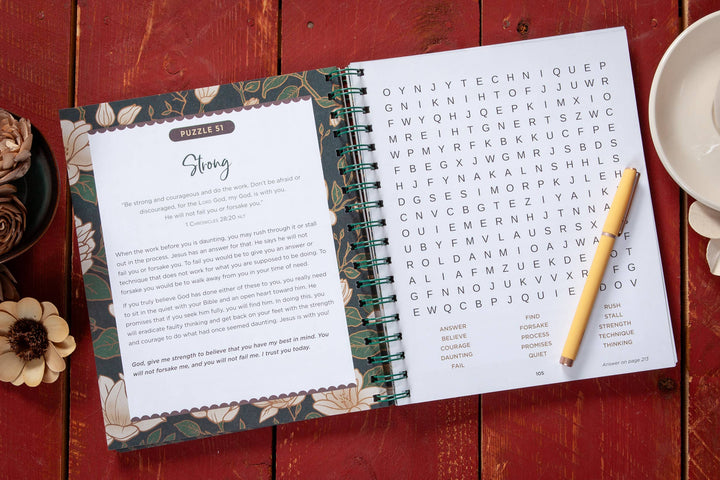 PUZZLE 51
Strong
"Be strong and courageous and do the work. Don't be afraid or
discouraged, for the LORD God, my God, is with you.
He will not fail you or forsake you."
1 CHRONICLES 28:20 NLT
When the work before you is daunting, you may rush through it or stall
out in the process. Jesus has an answer for that. He says he will not
fail you or forsake you. To fail you would be to give you an answer or
technique that does not work for what you are supposed to be doing. To
forsake you would be to walk away from you in your time of need.
If you truly believe God has done either of these to you, you really need
to sit in the quiet with your Bible and an open heart toward him. He
promises that if you seek him fully, you will find him. In doing this, you
will eradicate faulty thinking and get back on your feet with the strength
and courage to do what had once seemed daunting. Jesus is with you!
God, give me strength to believe that you have my best in mind. You
will not forsake me, and you will not fail me. I trust you today.
O Y N J Y T E C H N I Q U E P
G N I K N I H T O F J J U W R
F W Y Q H J Q E P K I M X I O
M R E I H T G N E R T S Z W C
W P M Y R F K B K K U C F P E
F B E G X J W G M R J S B D S
H J F Y N A K A L N S H H L S
D G S E S I M O R P K J L E H
C N V C B G T E Z I Y A I K
O U I E M E R N H J T N N A
U B Y F M V L A U S R S X
R O L D A N M I O A J W A
A L I A F M Z U E K D E O F
G F N N O J U K V V X R G T
E W Q C B P J Q U I E D O V
ANSWER
BELIEVE
COURAGE
DAUNTING
FAIL
FIND
FORSAKE
PROCESS
PROMISES
QUIET
RUSH
STALL
STRENGTH
TECHNIQUE
THINKING
105
Answer on page 213